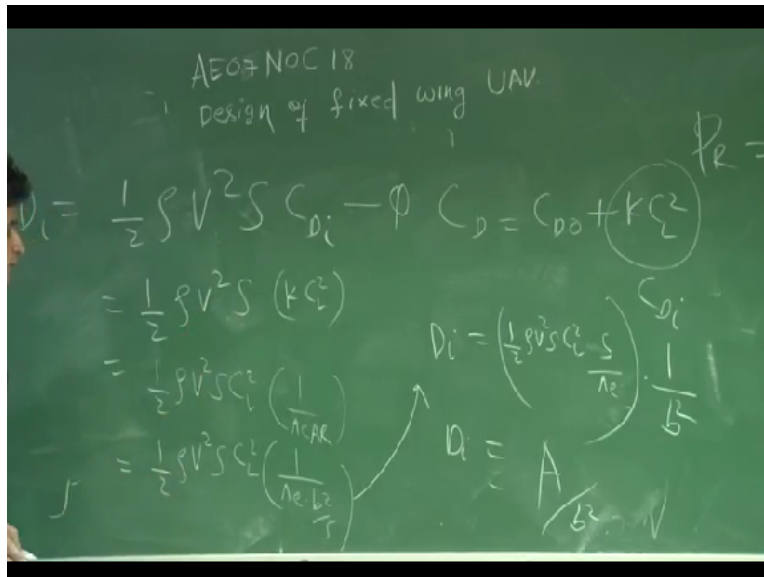 AE07NOC18
Design of fixed wing UAV
P_R =
D_i = 1/2 ρV²S C_{D_i} — ① C_D = C_{D0} + KC_L²
C_{D_i}
= 1/2 ρV²S (KC_L²)
= 1/2 ρV²SC_L² (1/πeAR)
= 1/2 ρV²SC_L² (1/(πe·b²/S))
D_i = (1/2 ρV²SC_L² S/πe) · 1/b²
D_i = A/b²